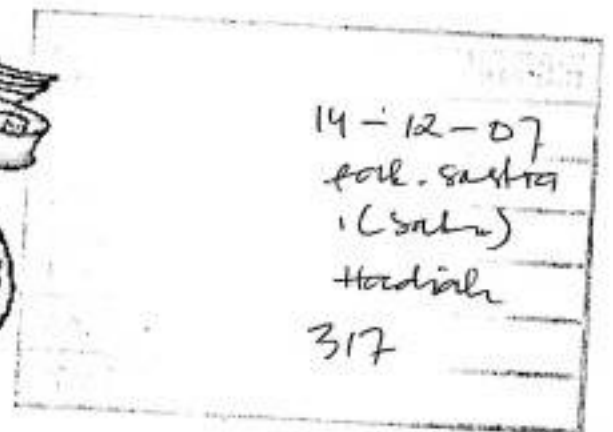 14-12-07
Fak. Sastra
1 (Satu)
Hadiah
317